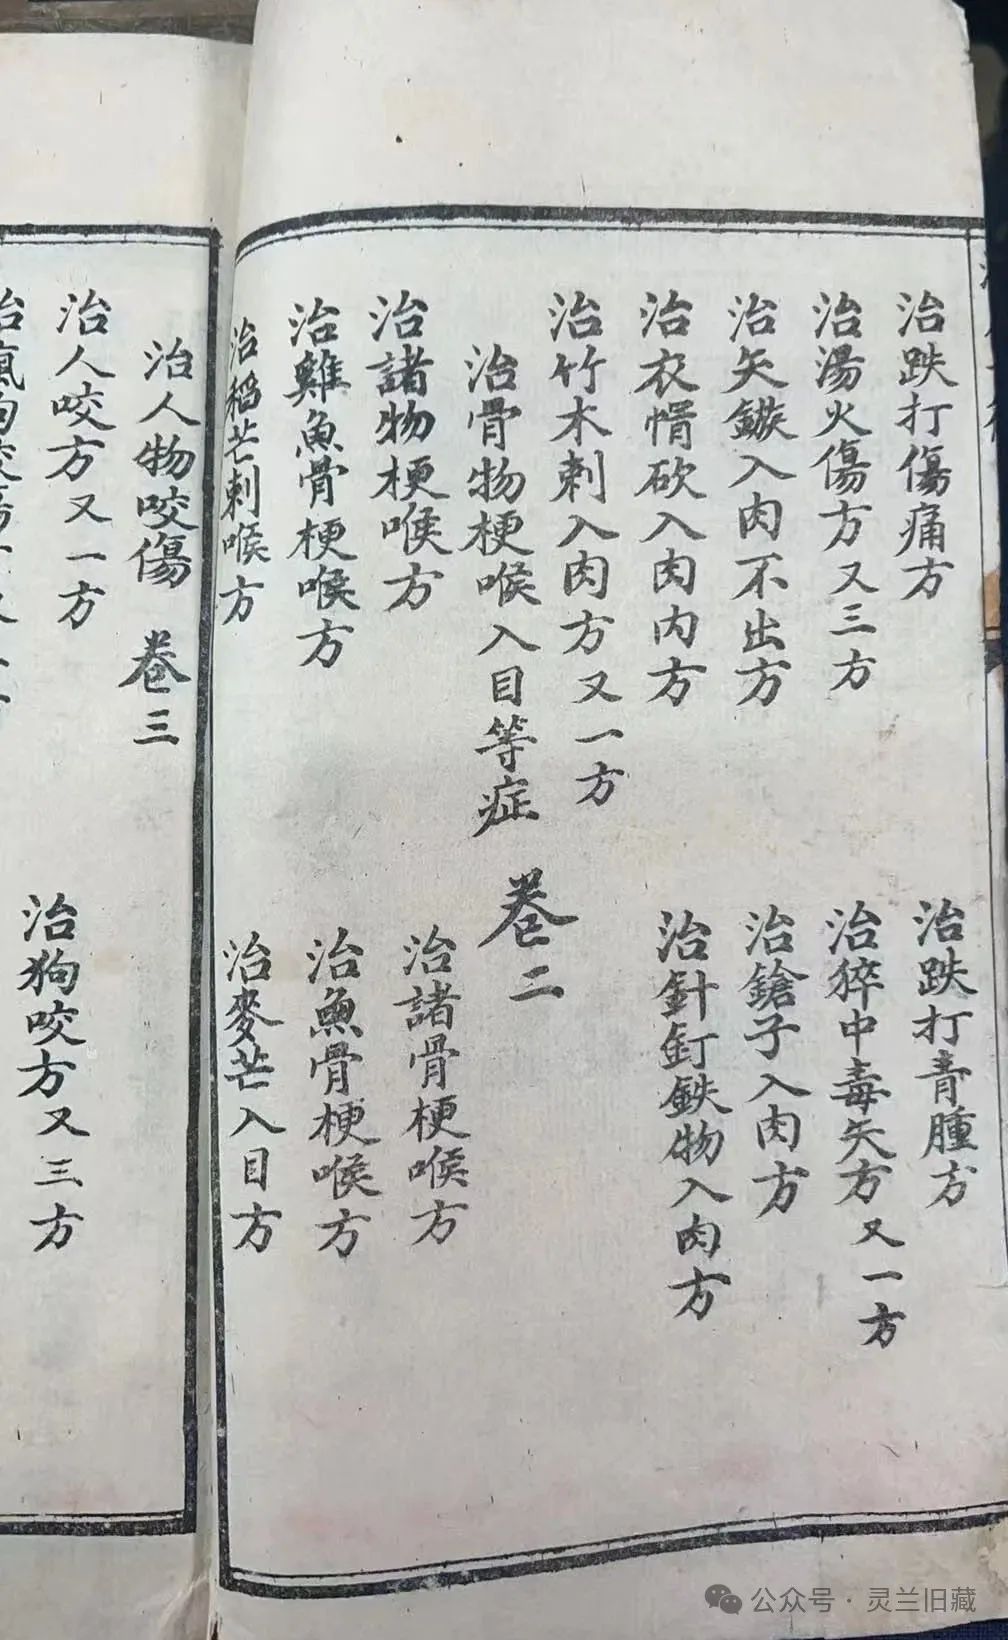 治跌打傷痛方
治跌打青腫方
治湯火傷方又三方
治猝中毒矢方又一方
治矢鏃入肉不出方
治鎗子入肉方
治衣惰砍入肉内方
治針釘鉄物入肉方
治竹木刺入肉方又一方
治骨物梗喉入目等症 卷二
治諸物梗喉方
治諸骨梗喉方
治雞魚骨梗喉方
治魚骨梗喉方
治稻芒刺喉方
治麥芒入目方
治人物咬傷 卷三
治人咬方又一方
治狗咬方又三方
公众号·灵兰旧藏